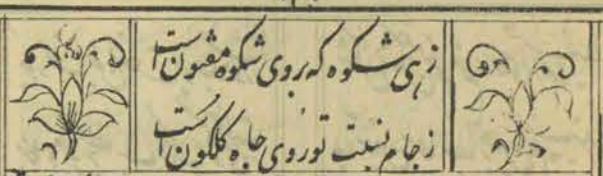 زہی شکوہ کہ بروی شکوہ مفتون است
ز جام نسبت تو روی جاہ گلگون است